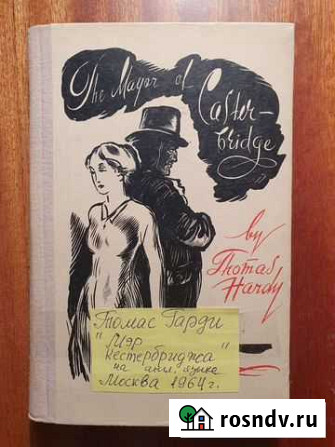 The Mayor of
Caster-
bridge
by
Thomas
Hardy
Томас Гарди
"Мэр
Кестербриджа"
на англ. языке
Москва 1964г.
rosndv.ru